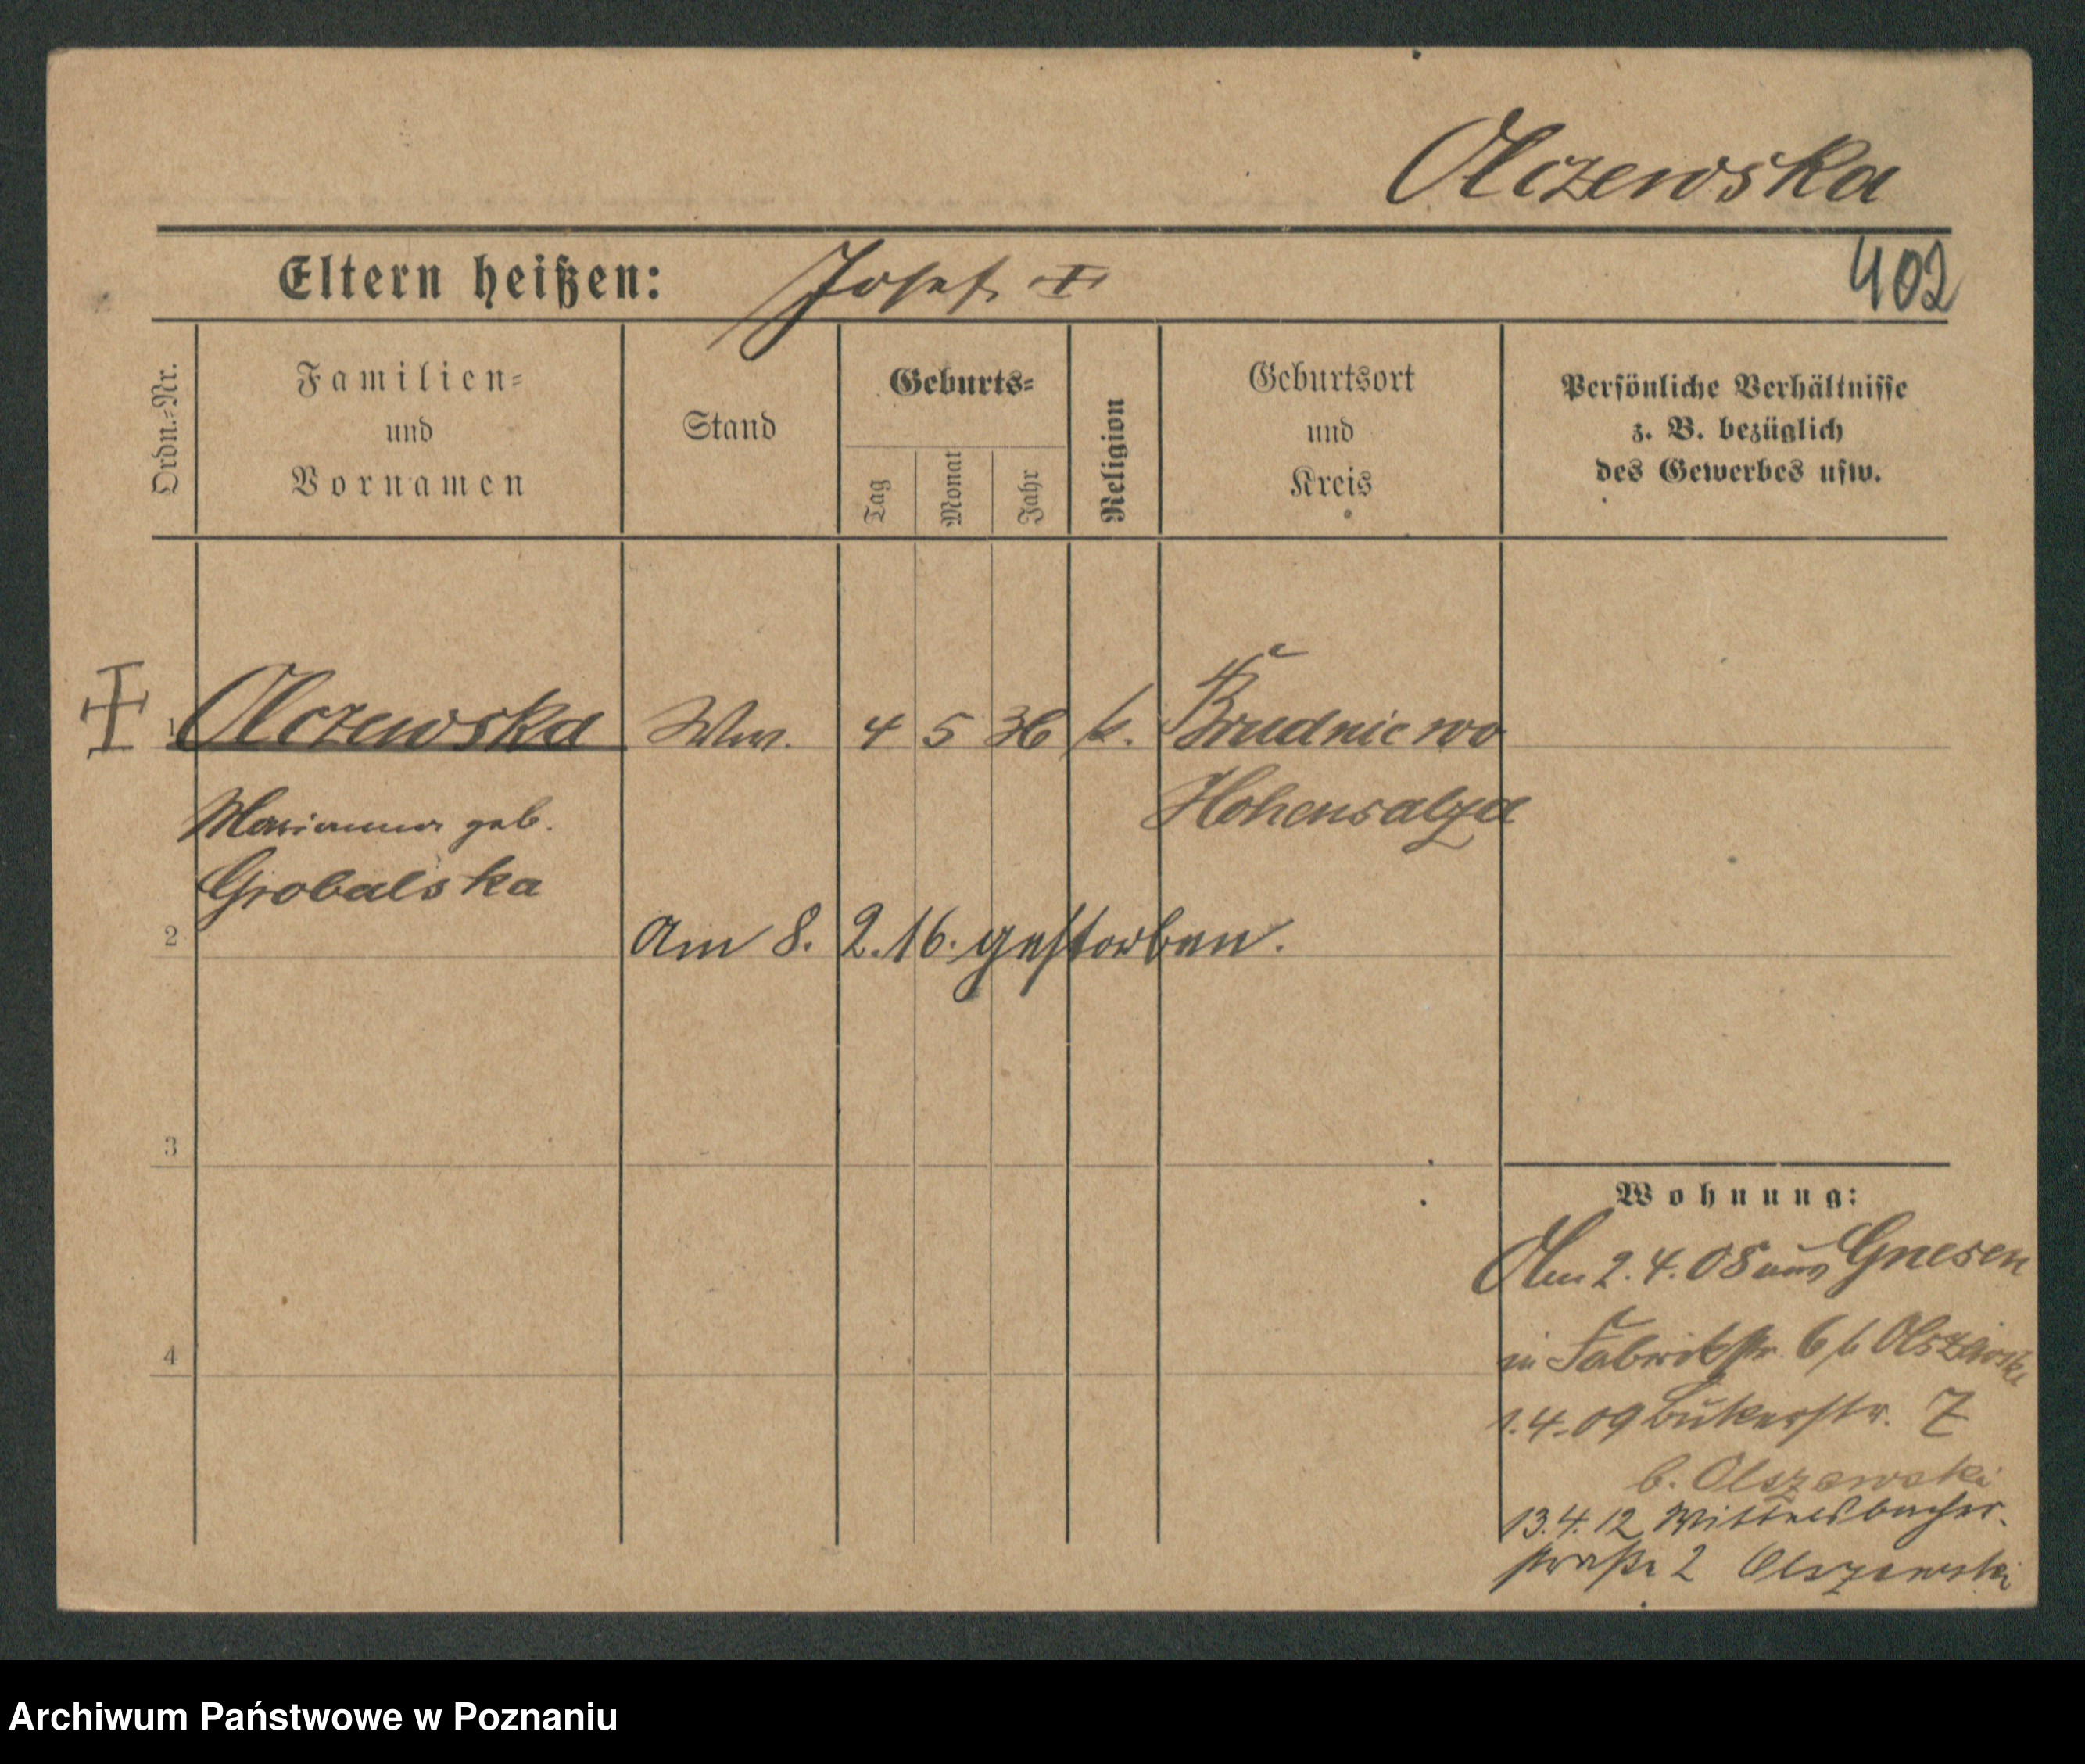 Olczewska
Eltern heißen: Josef +
402
Ordn.-Nr.
Familien-
und
Vornamen
Stand
Geburts-
Tag
Monat
Jahr
Religion
Geburtsort
und
Kreis
Persönliche Verhältnisse
z. B. bezüglich
des Gewerbes usw.
1 Olczewska Ww. 4 5 36 k. Brudnicwo
Marianna geb. Hohensalza
Grobalska
2 Am 8. 2. 16. gestorben.
3
4
Wohnung:
Am 2. 4. 08 aus Gnesen
in Fabrikstr. 6 b Olszewski
1. 4. 09 Bukerstr. 7
b. Olszewski
13. 4. 12 Wittelsbacher-
straße 2 Olszewski
Archiwum Państwowe w Poznaniu